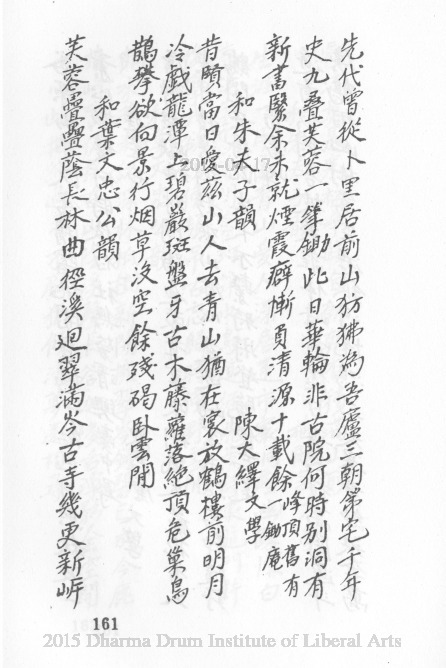 先代曾從卜里居前山彷彿為吾廬三朝第宅千年
史九疊芙蓉一筆鋤此日華輪非古院何時別洞有
新書緊余未就煙霞癖慚負清源十載餘峰頂舊有一鋤庵
和朱夫子韻　陳大繹文學
昔賢當日愛茲山人去青山猶在寰放鶴樓前明月
冷戲龍潭上碧巖斑盤牙古木藤蘿落絕頂危巢鳥
鵲攀欲向景行烟草沒空餘殘碣臥雲間
和葉文忠公韻
芙蓉疊疊蔭長林曲徑溪迴翠滿岑古寺幾更新
161
2015 Dharma Drum Institute of Liberal Arts